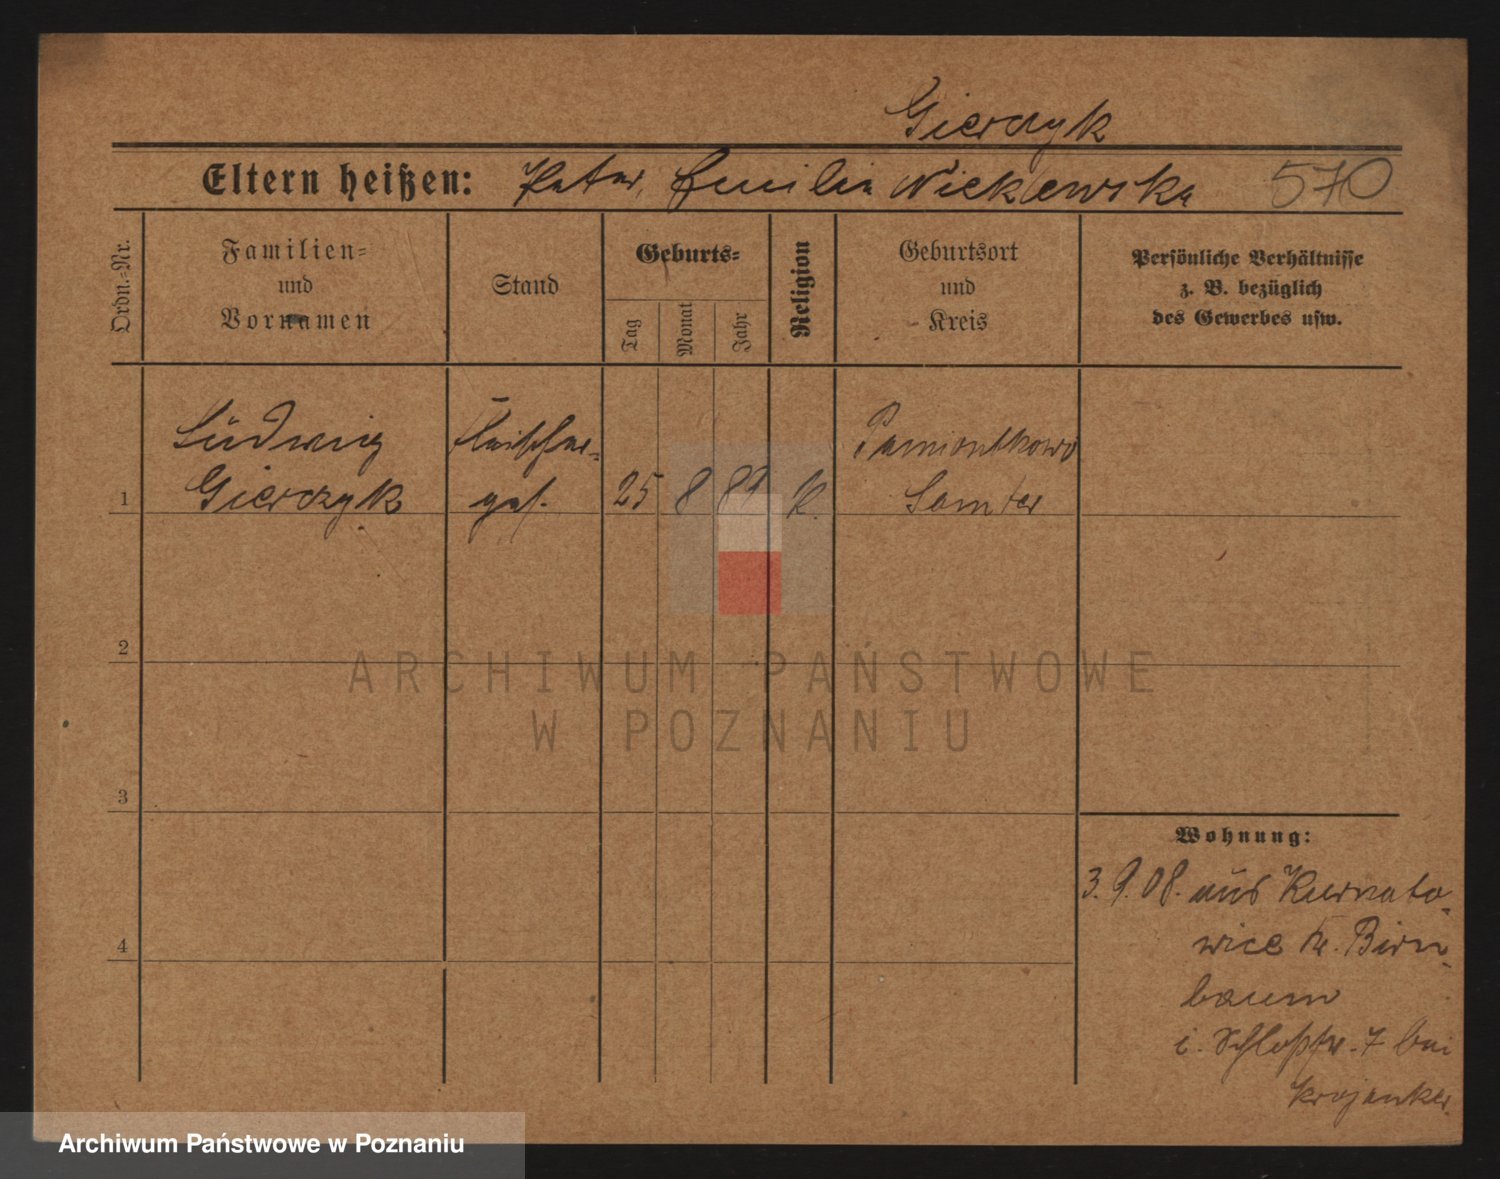 Gierczyk
Eltern heißen: Peter, Emilia Wieklewska 570
Ordn.-Nr.
Familien-
und
Vornamen
Stand
Geburts-
Tag
Monat
Jahr
Religion
Geburtsort
und
Kreis
Persönliche Verhältnisse
z. B. bezüglich
des Gewerbes usw.
Ludwig
Gierczyk
Fleischer-
ges.
25 8 89 K.
Pamiontkowo
Samter
1
2
3
4
ARCHIWUM PAŃSTWOWE
W POZNANIU
Wohnung:
3.9.08. aus Kurnato-
wice Kr. Birn-
baum
i. Schloßstr. 7 bei
Krojanker
Archiwum Państwowe w Poznaniu